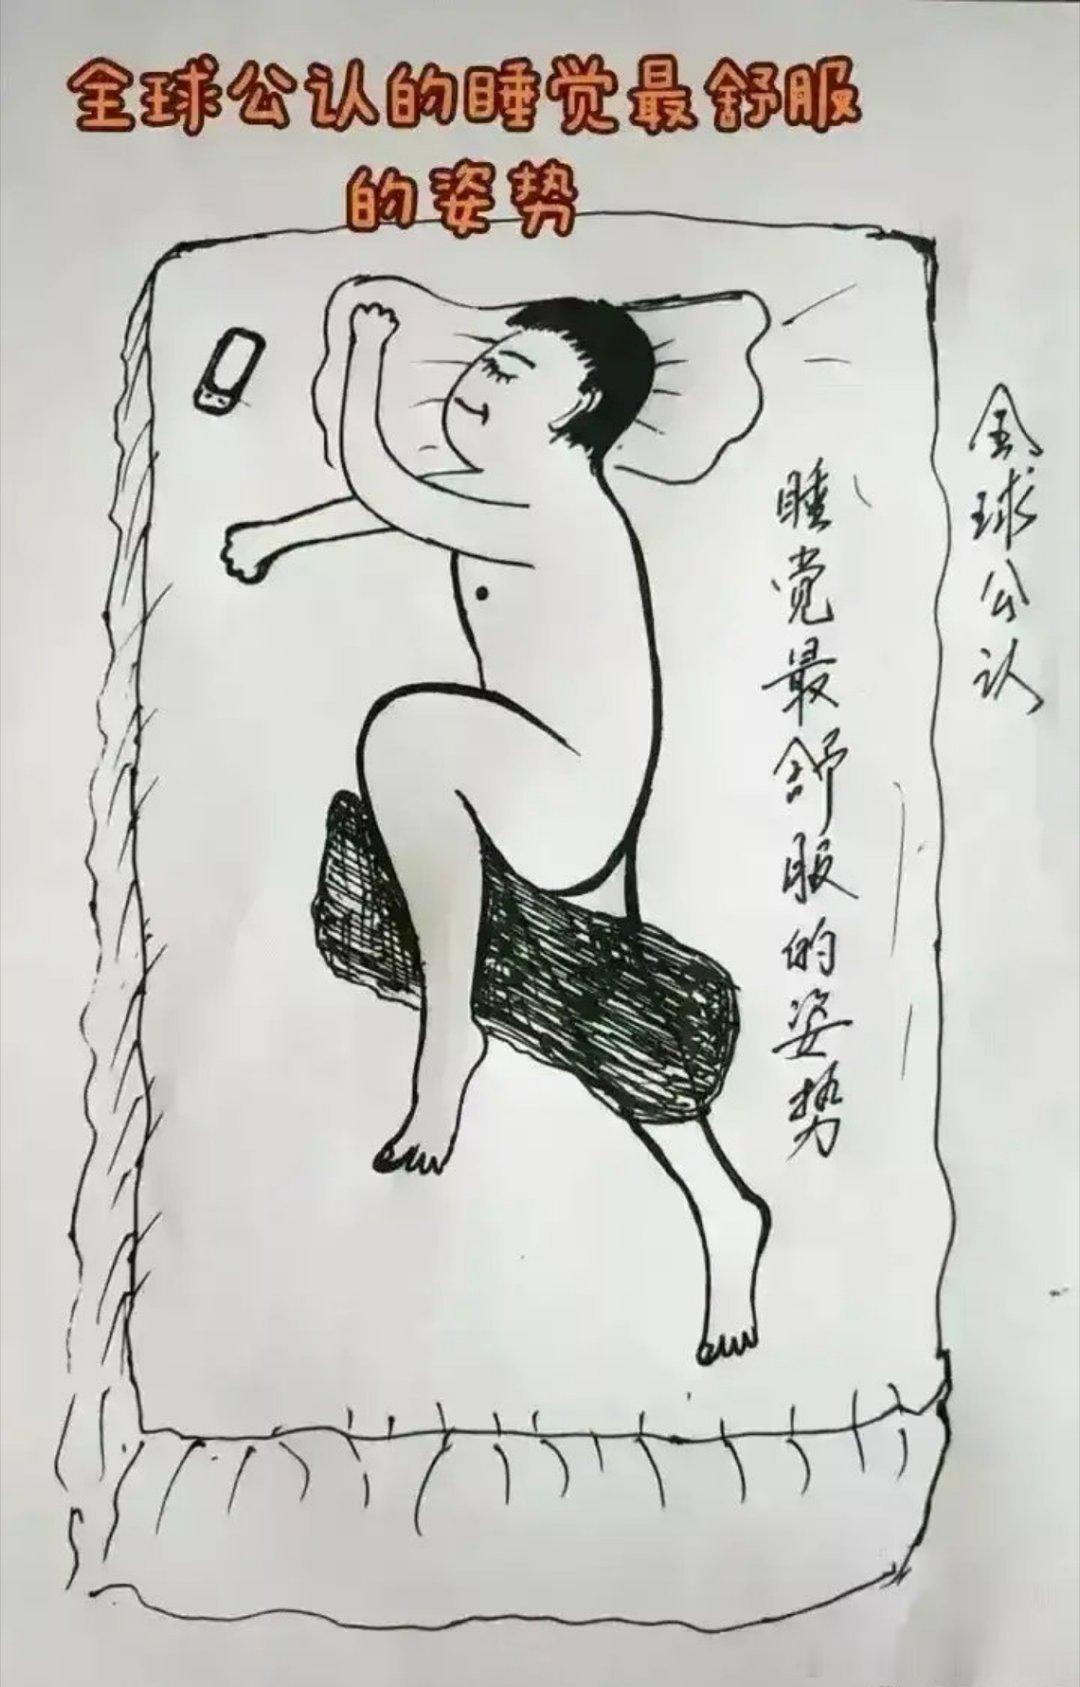 全球公认的睡觉最舒服
的姿势
全球公认
睡觉最舒服的姿势